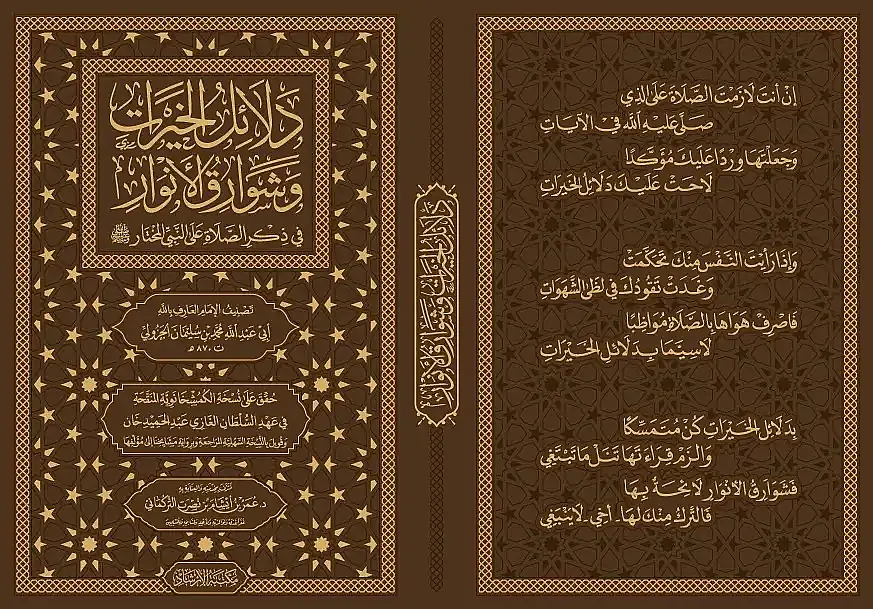 دَلَائِلُ الْخَيْرَاتِ
وَشَوَارِقُ الْأَنْوَارِ
فِي ذِكْرِ الصَّلَاةِ عَلَى النَّبِيِّ الْمُخْتَارِ ﷺ
تَصْنِيفُ الإِمَامِ العَارِفِ بِاللهِ
أَبِي عَبْدِ اللهِ مُحَمَّدِ بْنِ سُلَيْمَانَ الجَزُولِيِّ
ت ٨٧٠ هـ
حُقِّقَ عَلَى نُسْخَةِ الكُمُشْخَانَوِيَّةِ المُنَقَّحَةِ
فِي عَهْدِ السُّلْطَانِ الغَازِي عَبْدِ الحَمِيدِ خَان
وَقُوبِلَ بِالنُّسْخَةِ السَّهْلِيَّةِ المُرَاجَعَةِ وَبِرِوَايَةِ مَشَايِخِنَا إِلَى مُؤَلِّفِهَا
تَشَرَّفَ بِخِدْمَتِهِ وَالعِنَايَةِ بِهِ
د. عُمَرُ بْنُ إِنْشَامِ بْنِ نُصْرَتَ التُّرْكُمَانِيّ
مَكْتَبَةُ الإِرْشَادِ
دَلَائِلُ الْخَيْرَاتِ وَشَوَارِقُ الْأَنْوَارِ
إِنْ أَنْتَ لَازَمْتَ الصَّلَاةَ عَلَى الَّذِي
صَلَّى عَلَيْهِ اللهُ فِي الْآيَاتِ
وَجَعَلْتَهَا وِرْدًا عَلَيْكَ مُؤَكَّدًا
لَاحَتْ عَلَيْكَ دَلَائِلُ الْخَيْرَاتِ
وَإِذَا رَأَيْتَ النَّفْسَ مِنْكَ تَحَكَّمَتْ
وَغَدَتْ تَقُودُكَ فِي لَظَى الشَّهَوَاتِ
فَاصْرِفْ هَوَاهَا بِالصَّلَاةِ مُوَاظِبًا
لَاسِيَّمَا بِدَلَائِلِ الْخَيْرَاتِ
بِدَلَائِلِ الْخَيْرَاتِ كُنْ مُتَمَسِّكًا
وَالْزَمْ قِرَاءَتَهَا تَنَلْ مَا تَبْتَغِي
فَشَوَارِقُ الْأَنْوَارِ لَائِحَةٌ بِهَا
فَالتَّرْكُ مِنْكَ لَهَا - أَخِي - لَا يَنْبَغِي